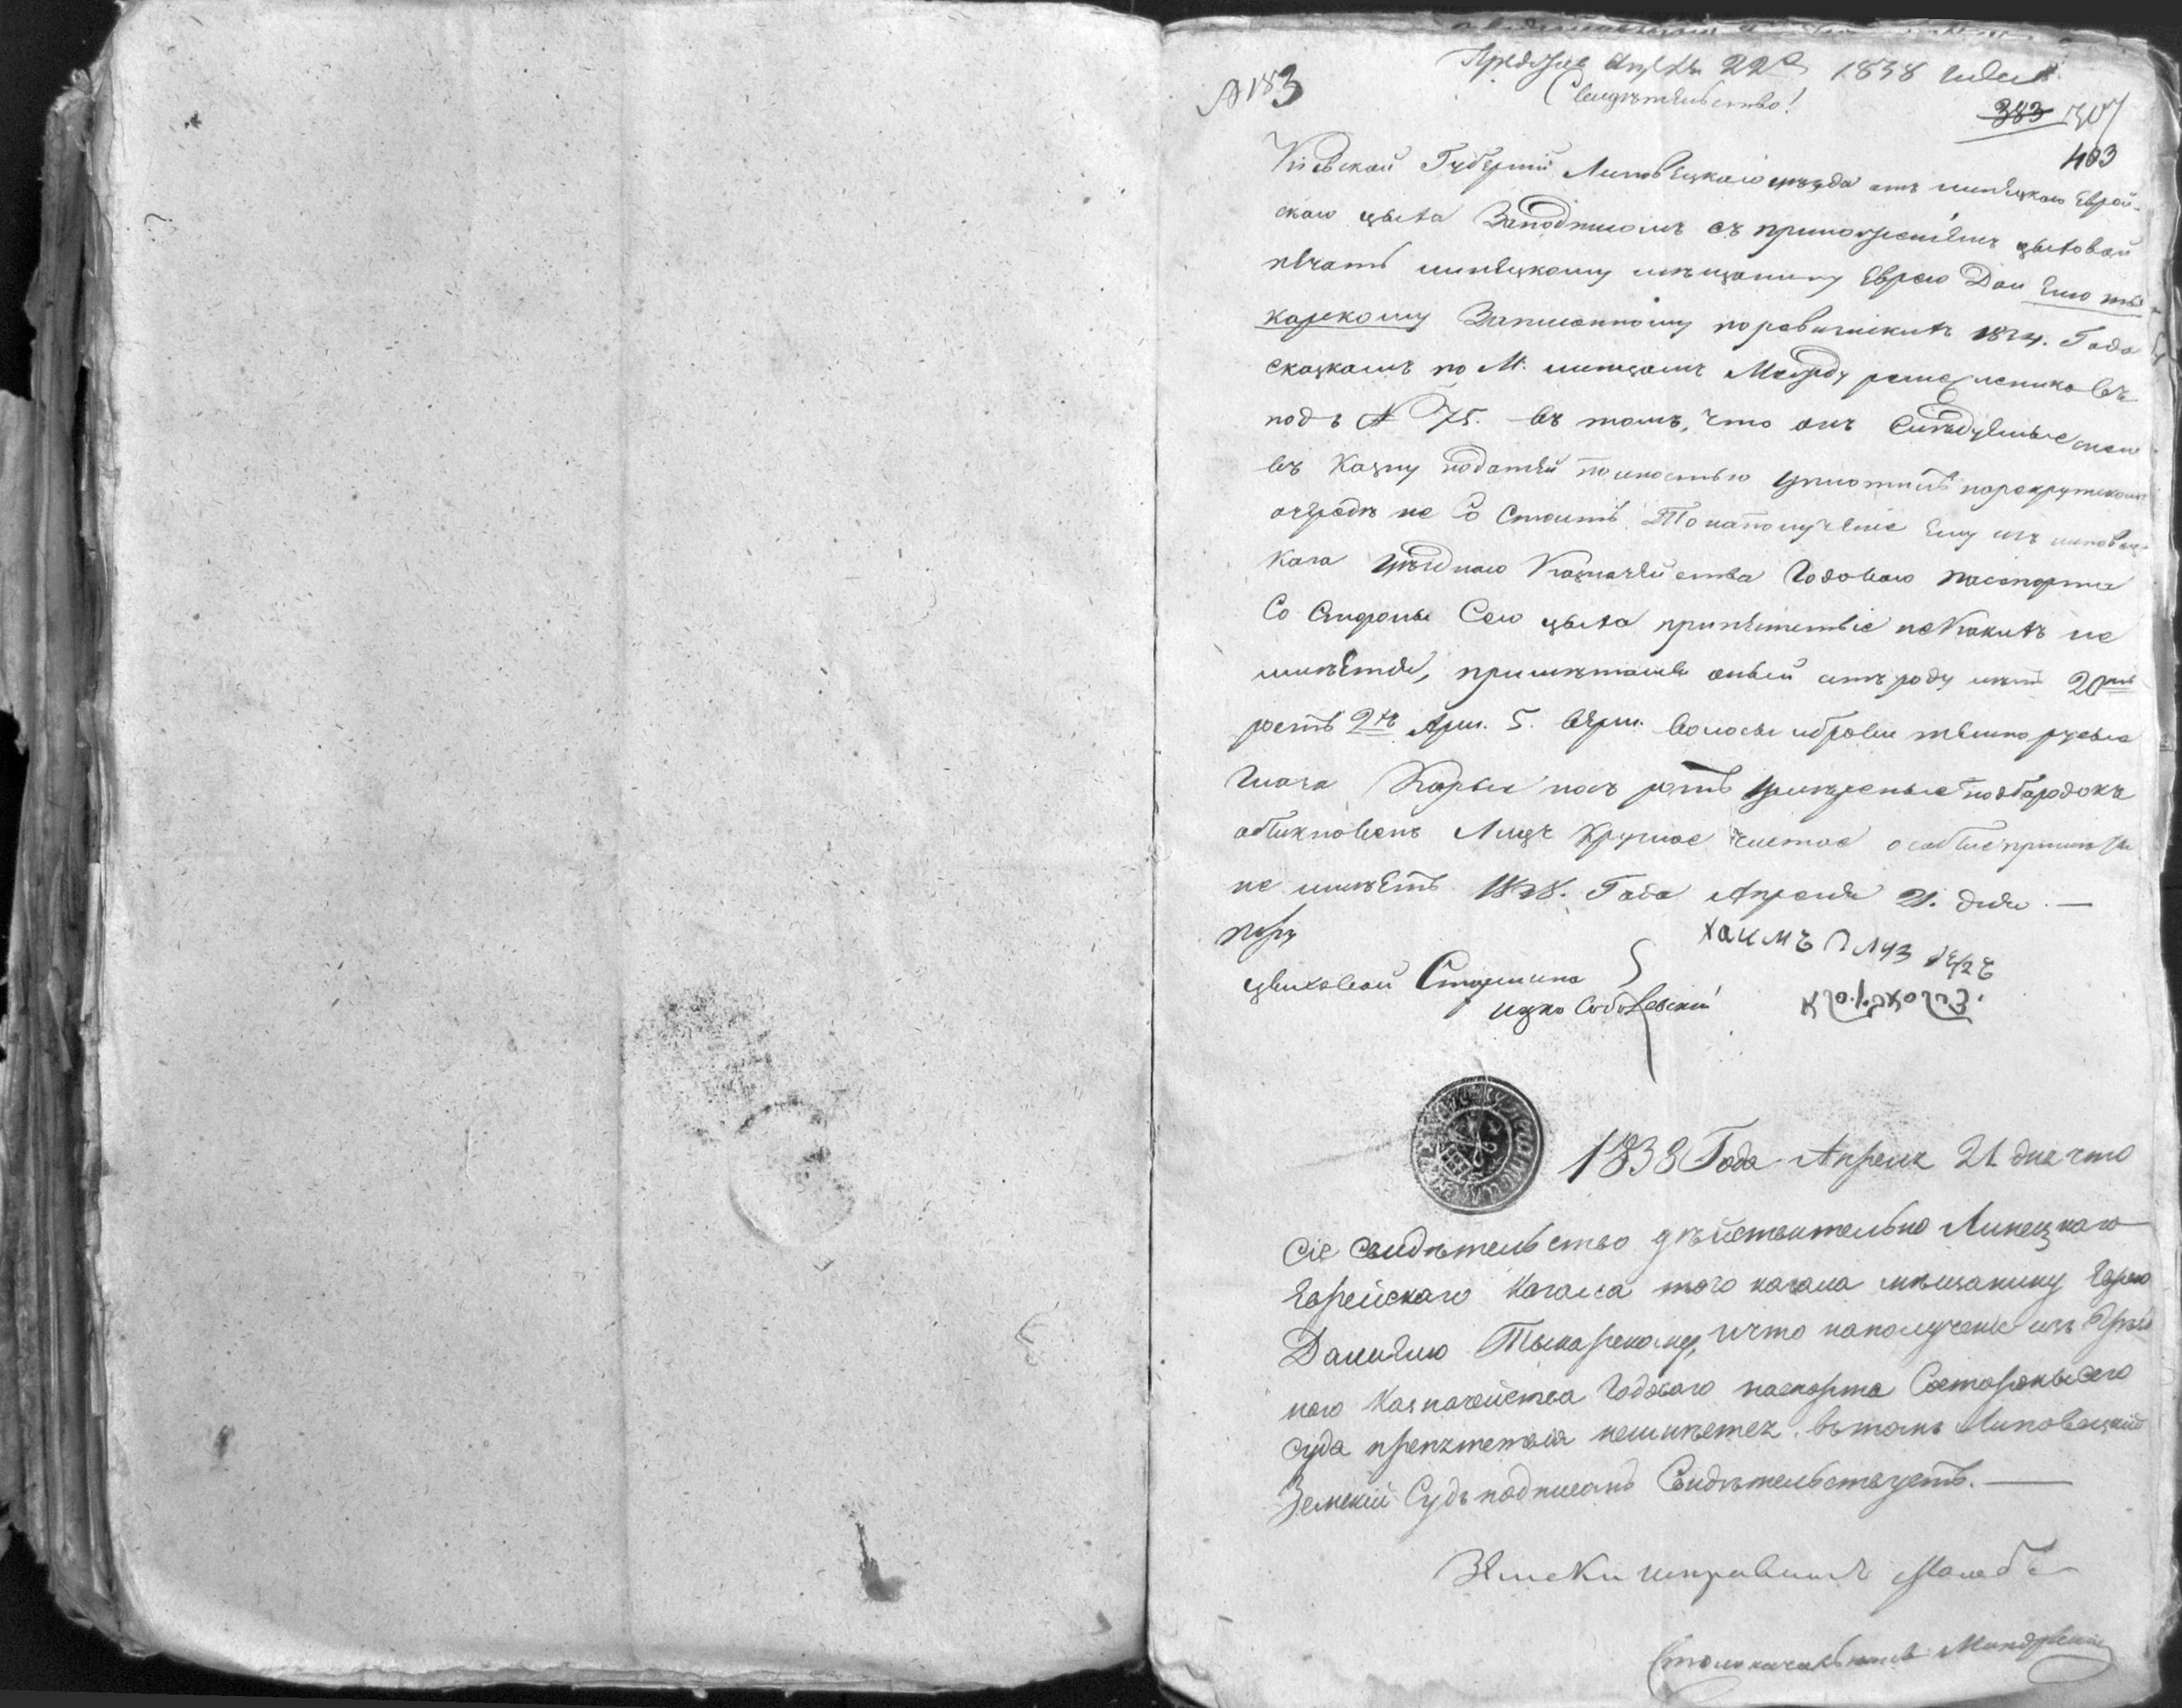 № 183
22 1838 года
Свидѣтельство!
383
403
Кіевской Губерніи Липовецкаго уѣзда отъ липецкаго Еврей-
скаго цѣха Заподписомъ съ приложеніемъ цѣховой
печати липецкому мѣщанину Еврею Дан
карскому Записанному поревизскихъ Года
сказкахъ по М. между ремеслениковъ
подъ № 75. въ томъ, что онъ Слѣдуемые
въ Казну податей полностью уплотилъ порекрутской
очереди не Состоитъ. То наполученіе Ему изъ липовец-
кого уѣзднаго Казначейства Годоваго паспорта
Со Стороны Сего цѣха припетствіе неКакихъ не
имѣется, примѣтами оный отъроду лѣтъ 20ть
ростъ 2хъ Арш. 5. верш. волосы иброви темнорусые
Глаза Карые носъ ротъ умѣреные подбородокъ
обикновенъ Лице Круглое чистое особые примѣты
не имѣетъ 1838. Года Апреля 21. дня. —
цѣховой Старшина
ицко Соболевскій
Хаимъ
1838 Года Апреля 21 дня что
Сіе свидѣтельство дѣйствительно Липецкаго
Еврейскаго Кагала того кагала мѣщанину Еврею
Данилю Тыкарскому, ичто наполученіе изъ Уѣзд
наго Казначейства Годоваго паспорта Состоронысего
суда препятствія неимѣетса. вътомъ Липовецкій
Земскій Судъ подписомъ Свидѣтельствуетъ. —
Столоначальникъ